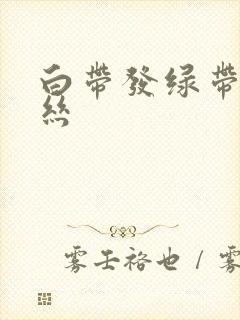 白带发绿带
丝
雾壬袼也 / 雾